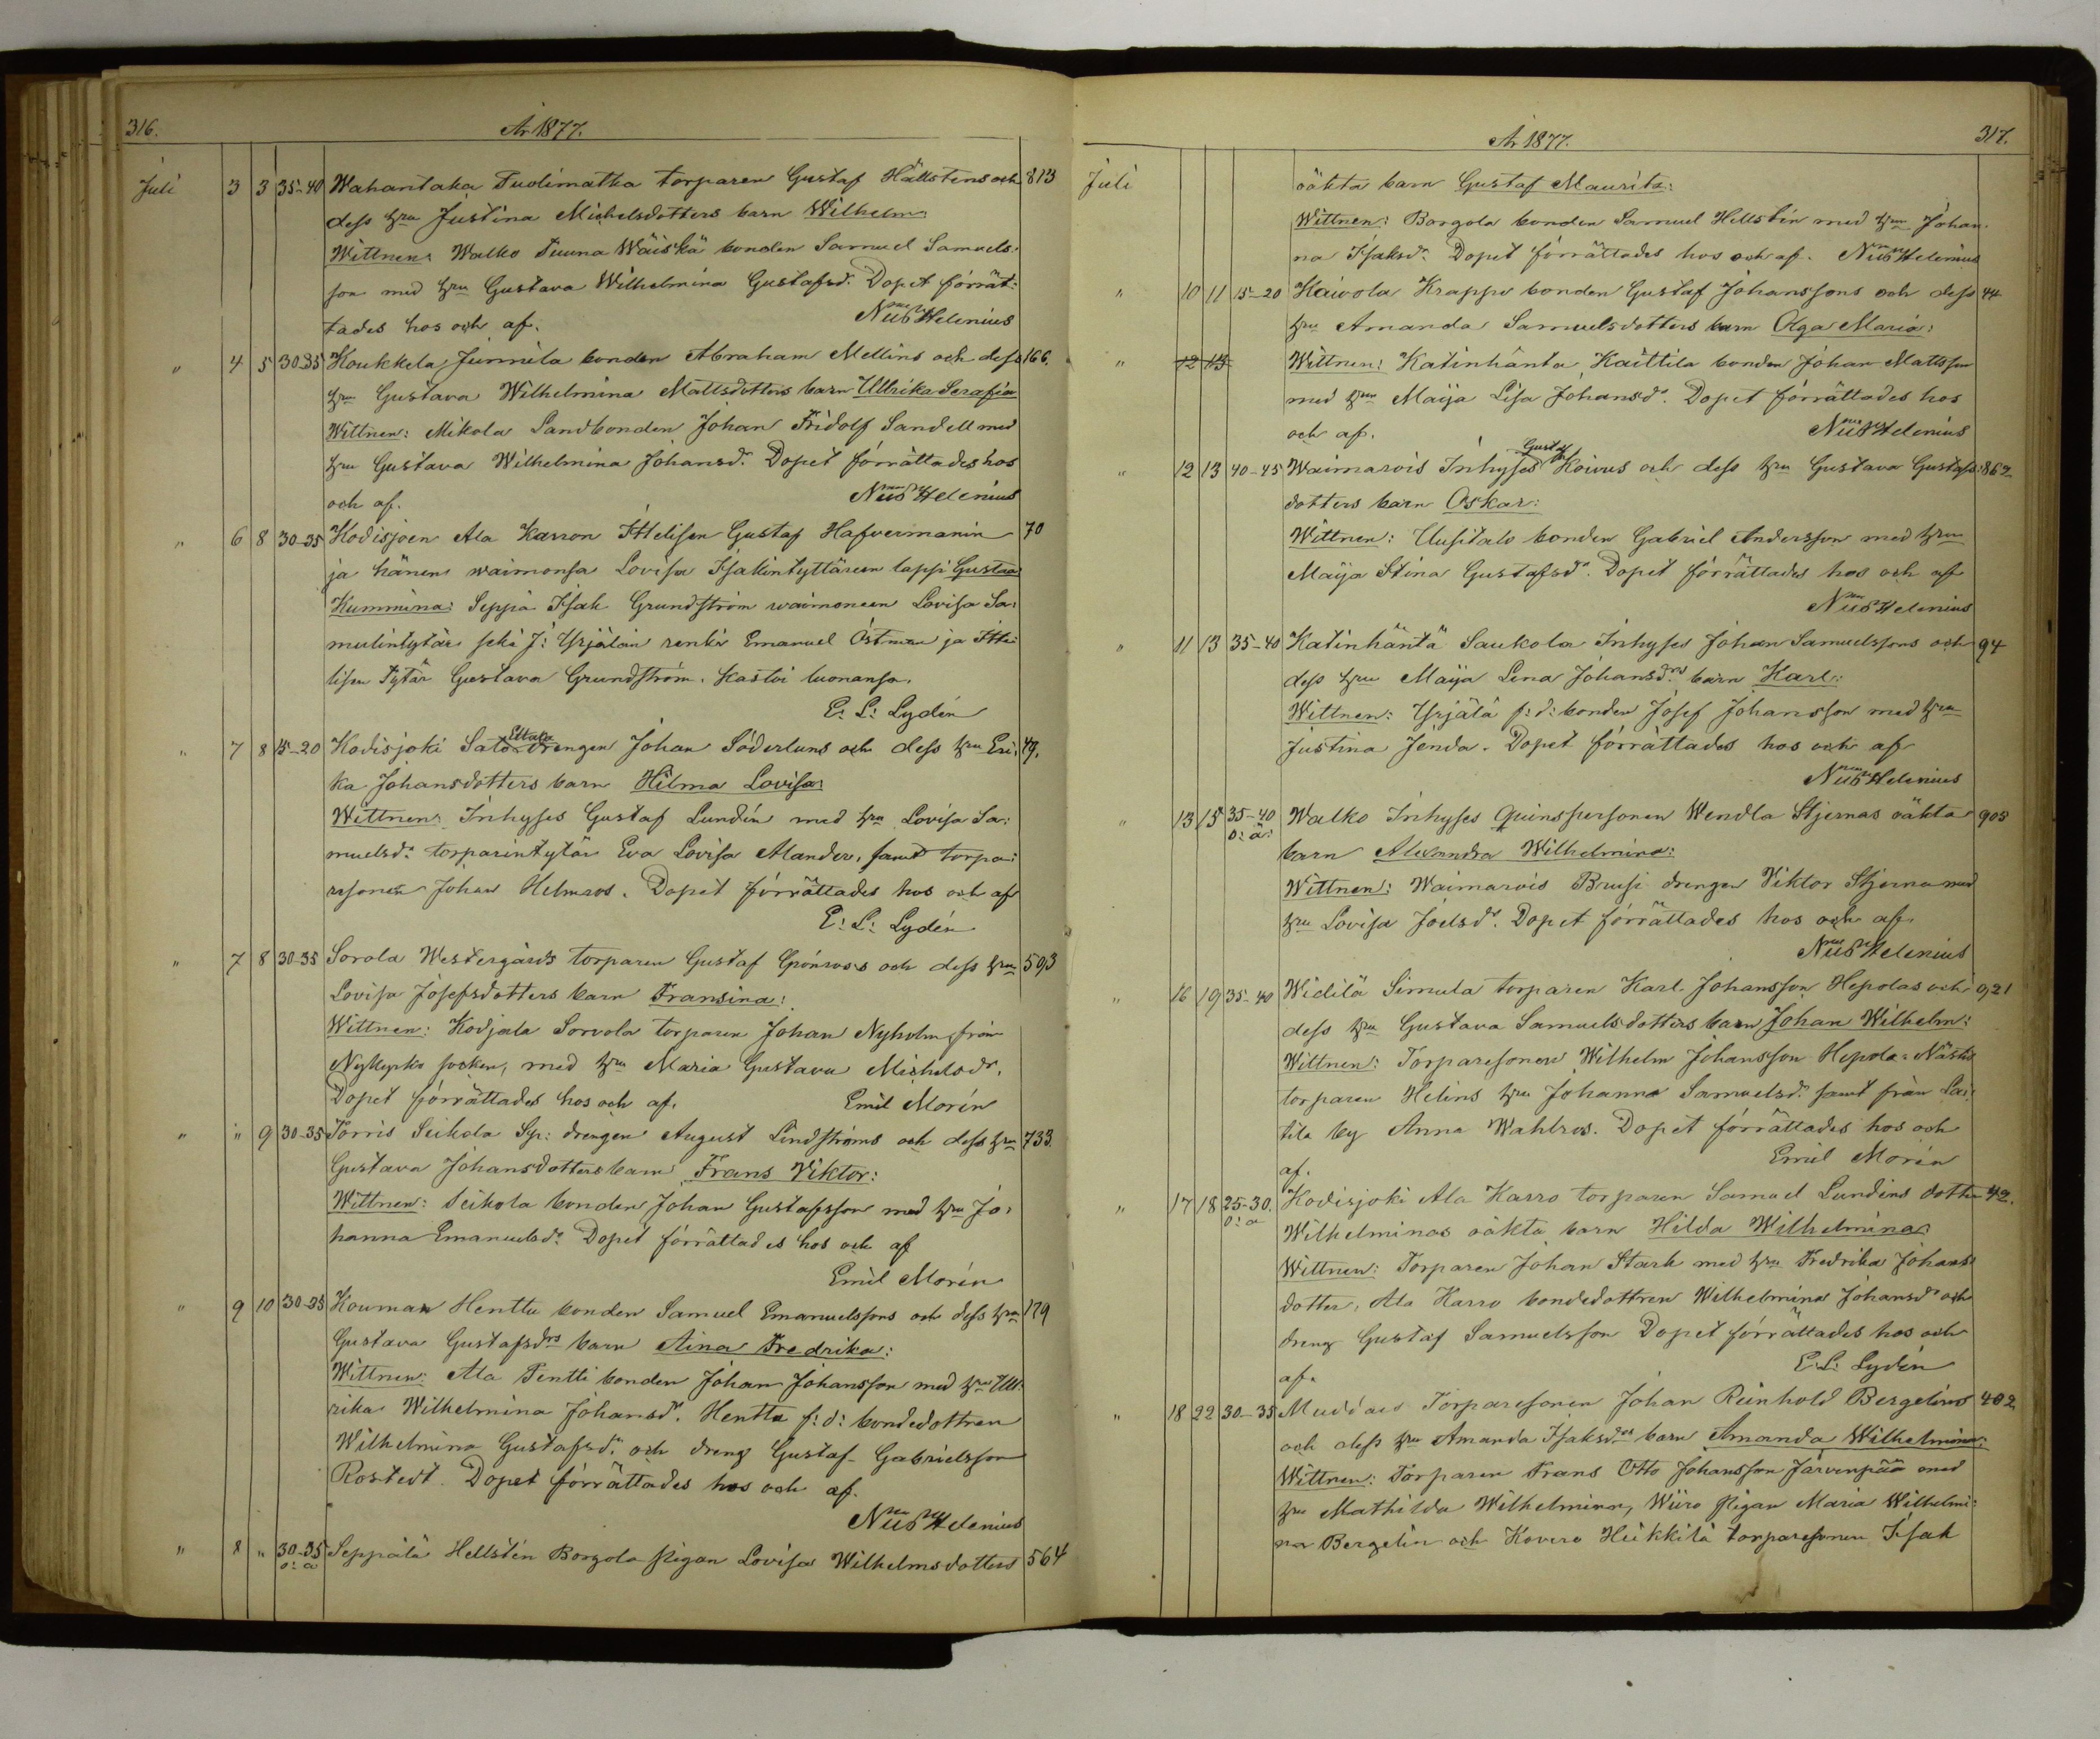 316. År 1877.
Juli 3 3 35-40 Wahantaka Tuolimatka torparen Gustaf Hällstens och 813
dess hru Justina Michelsdotters barn Wilhelm:
Wittnen: Walko Tuuna Wäiskä bonden Samuel Samuels-
son med hru Gustava Wilhelmina Gustafsd:r Dopet förrät-
tades hos och af. Helenius
" 4 5 30-35 Koukkela Junnila bonden Abraham Mellins och dess 166.
hru Gustava Wilhelmina Mattsdotters barn Ullrika Serafia
Wittnen: Mikola Landbonden Johan Fridolf Sandell med
hru Gustava Wilhelmina Johansd:r Dopet förrättades hos
och af. Helenius
" 6 8 30-35 Kodisjoen Ala Karron Ittelisen Gustaf Hafvermanin 70
ja hänen waimonsa Lovisa Isakintyttären lapsi Gustaa
Kummina: Seppä Isak Grundström waimoneen Lovisa Sa:
mulintytär sekä J: Yrjälän renki Emanuel Östman ja Itte:
lisen Tytär Gustava Grundström. Kastoi luonansa.
E: L: Lydén
" 7 8 15-20 Kodisjoki Salo Ettala drengen Johan Söderlunds och dess hru Eri: 49.
ka Johansdotters barn Hilma Lovisa:
Wittnen: Inhyses Gustaf Lundén med hru Lovisa Sa:
muelsd:r torparintytär Eva Lovisa Alander, samt torpa:
resonen Johan Helmros. Dopet förrättades hos och af
E: L: Lydén
" 7 8 30-35 Sorola Westergårds torparen Gustaf Grönroos och dess hru 503
Lovisa Josefsdotters barn Fransina:
Wittnen: Kodjala Sorvola torparen Johan Nyholm från
Nykyrko socken, med hru Maria Gustava Michelsdr.
Dopet förrättades hos och af. Emil Morén
" " 9 30-35 Torris Seikola Syt: drengen August Lindströms och dess hru 733.
Gustava Johansdotters barn Frans Viktor:
Wittnen: Seikola bonden Johan Gustafsson med hru Jo:
hanna Emanuelsd:r Dopet förrättades hos och af
Emil Morén
" 9 10 30-35 Kouman Henttu bonden Samuel Emanuelssons och dess hru 179
Gustava Gustafsdrs barn Aina Fredrika:
Wittnen: Ala Pentti bonden Johan Johansson med hru Ull:
rika Wilhelmina Johansd:r Hentta f:d: bondedottren
Wilhelmina Gustafsd:r och dreng Gustaf Gabrielsson
Rostedt. Dopet förrättades hos och af.
Helenius
" 8 " 30-35 o: ä Seppälä Hellstén Borgola pigan Lovisa Wilhelmsdotters 564
År 1877. 317.
Juli oäkta barn Gustaf Maurits:
Wittnen: Borgola bonden Samuel Hellstén med hru Johan-
na Isaksd:r Dopet förrättades hos och af. Helenius
" 10 11 15-20 Kaivola Krappo bonden Gustaf Johanssons och dess 44
hru Amanda Samuelsdotters barn Olga Maria:
" 12 13 Wittnen: Katinhänta Kaittila bonden Johan Mattsson
med hru Maija Lisa Johansd:r Dopet förrättades hos
och af. Helenius
" 12 13 40-45 Waimarois Inhyses Gustaf Koivus och dess hru Gustava Gustafs: 862
dotters barn Oskar:
Wittnen: Uusitalo bonden Gabriel Andersson med hru
Maija Stina Gustafsd:r Dopet förrättades hos och af
Helenius
" 11 13 35-40 Katinhäntä Saukola Inhyses Johan Samuelssons och 94
dess hru Maija Lena Johansdrs barn Karl:
Wittnen: Yrjälä f:d: bonden Josef Johansson med hru
Justina Jenda. Dopet förrättades hos och af
Helenius
" 13 15 35-40 o: ä: Walko Inhyses qvinspersonen Wendla Stjernas oäkta 905
barn Alexandra Wilhelmina:
Wittnen: Waimarois Brusi drengen Viktor Stjerna med
hru Lovisa Joelsd:r Dopet förrättades hos och af.
Helenius
" 16 19 35-40 Widilä Simula torparen Karl Johansson Hepolas och 921
dess hru Gustava Samuelsdotters barn Johan Wilhelm:
Wittnen: Torparesonen Wilhelm Johansson Hepola: Nästi
torparen Helins hru Johanna Samuelsd:r samt från Lai:
tila by Anna Wahlros. Dopet förrättades hos och
af. Emil Morén
" 17 18 25-30. o: ä Kodisjoki Ala Karro torparen Samuel Lundéns dotter 42.
Wilhelminas oäkta barn Hilda Wilhelmina:
Wittnen: Torparen Johan Stark med hru Fredrika Johans
dotter, Ala Karro bondedottren Wilhelmina Johansd:r och
dreng Gustaf Samuelsson Dopet förrättades hos och
af. E: L: Lydén
" 18 22 30-35 Muddais Torparesonen Johan Reinhold Bergelins 402
och dess hru Amanda Isaksdrs barn Amanda Wilhelmina:
Wittnen: Torparen Frans Otto Johansson Järvenpää med
hru Mathilda Wilhelmina, Wiiro pigan Maria Wilhelmi:
na Bergelin och Kovero Heikkilä torparesonen Isak